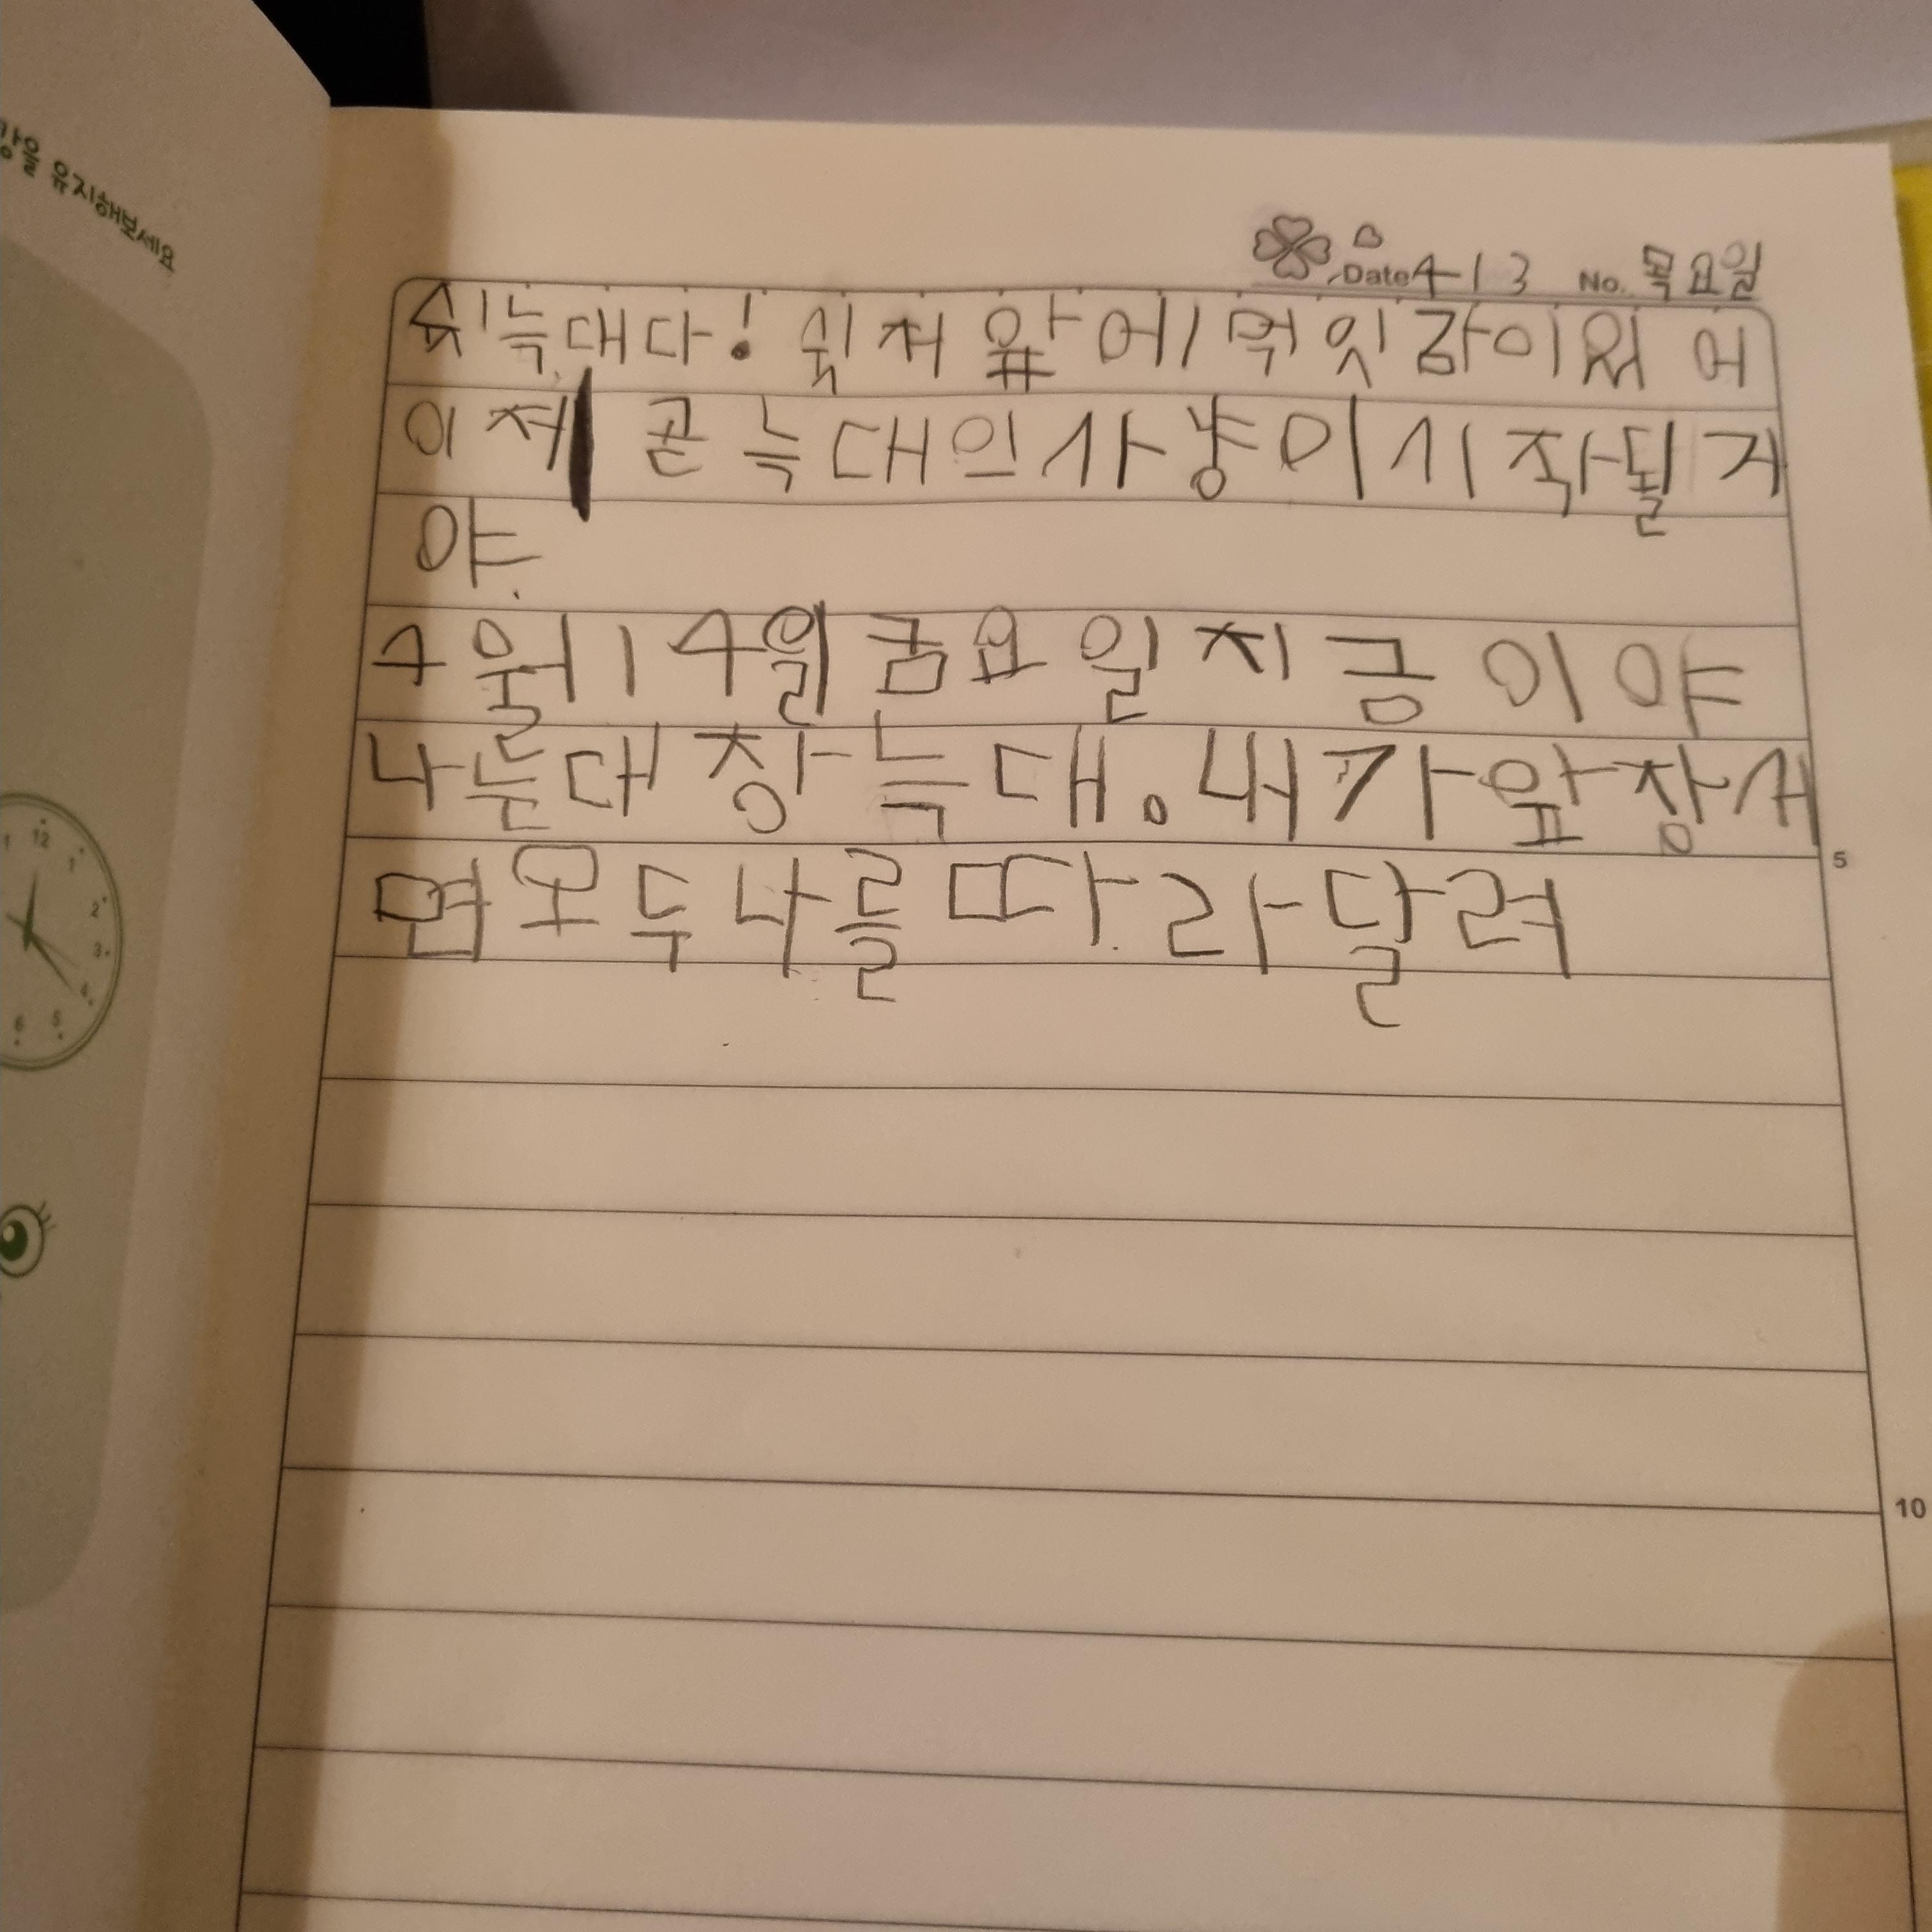 강을 유지해보세요
Date 4-13 No. 목요일
쉬늑대다! 쉿저앞에먹잇감이있어
이제 곧늑대의사냥이시작될거
야.
4월14일금요일지금이야
나는대장늑대.내가앞장서
면모두나를따라달려
5
10
11 12 1
2
3
4
5
6